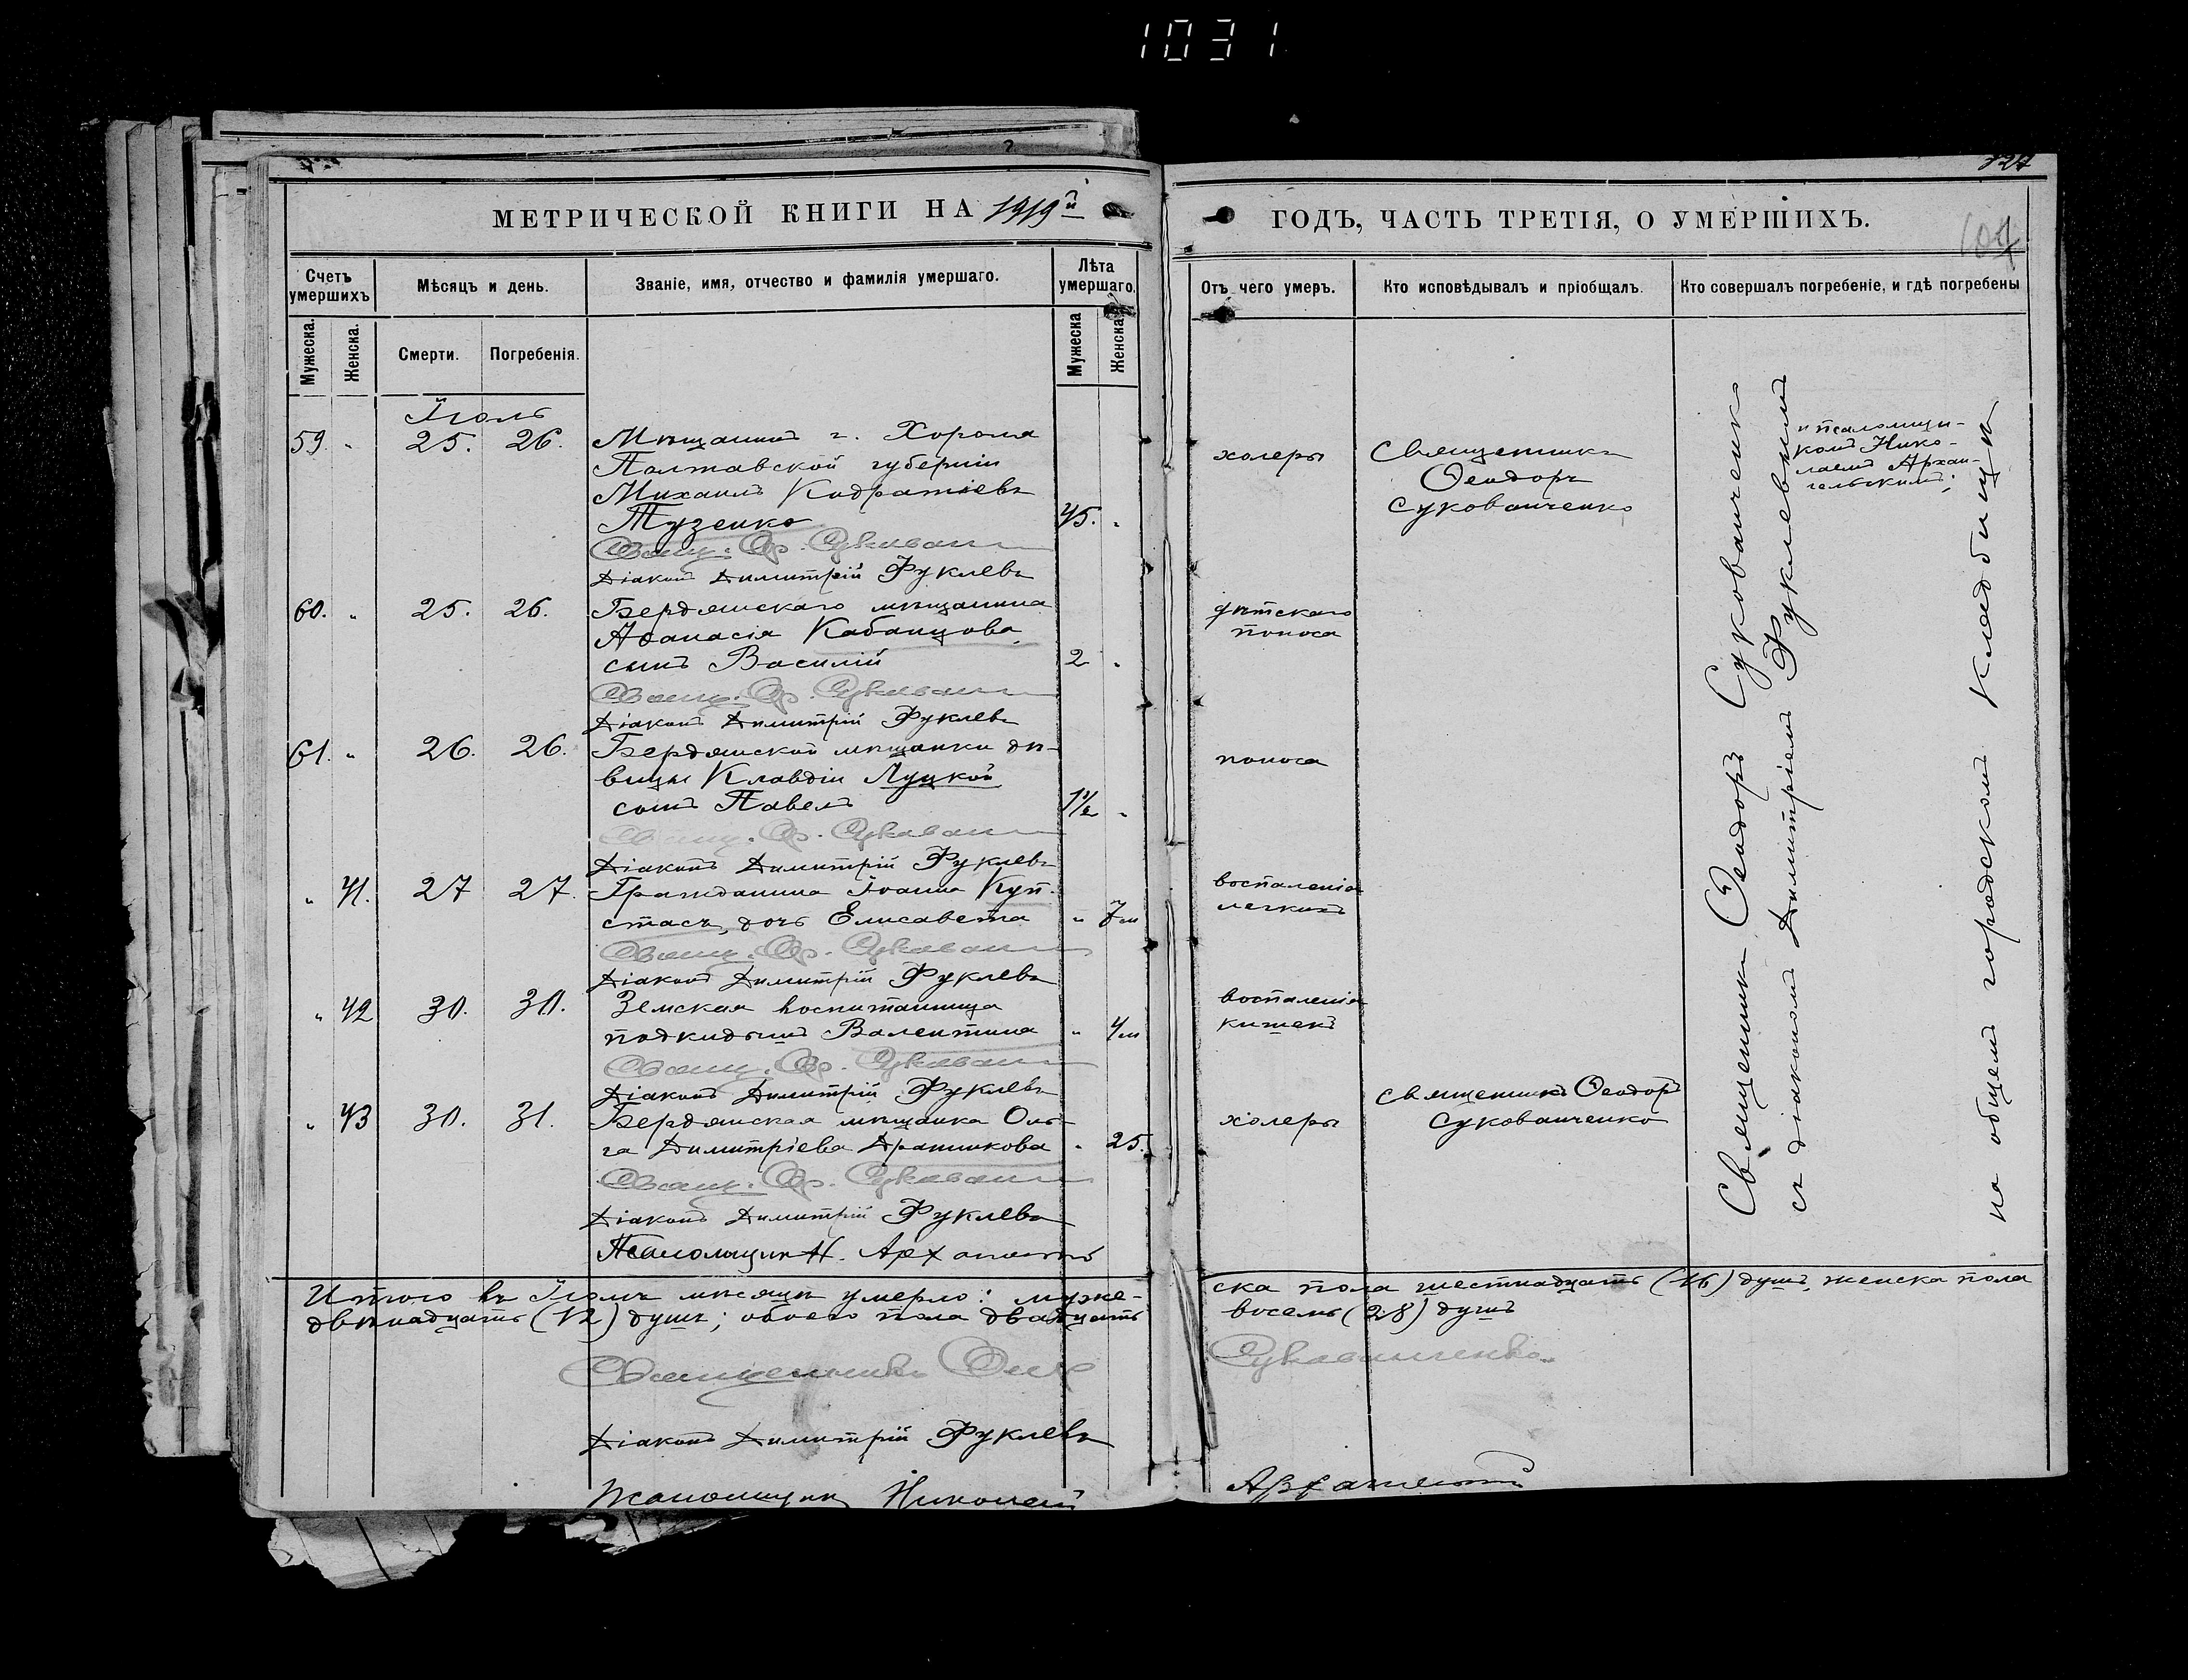 1031
МЕТРИЧЕСКОЙ КНИГИ НА 1919й
ГОДЪ, ЧАСТЬ ТРЕТІЯ, О УМЕРШИХЪ.
Счетъ умершихъ
Мѣсяцъ и день.
Званіе, имя, отчество и фамилія умершаго.
Лѣта умершаго.
Отъ чего умеръ.
Кто исповѣдывалъ и пріобщалъ.
Кто совершалъ погребеніе, и гдѣ погребены
Мужеска.
Женска.
Смерти.
Погребенія.
Мужеска
Женска
Іюль
59. " 25. 26. Мѣщанинъ г. Хорола
Полтавской губерніи
Михаилъ Кодратіевъ
Тузенко 45. "
холеры
Священникъ
Ѳеодоръ
Сукованченко
Свящ. Ѳ. Сукован
Діаконъ Димитрій Фуклевъ
60. " 25. 26. Бердянскаго мѣщанина
Аѳанасія Кабанцова
сынъ Василій 2 "
дѣтскаго
поноса
Свящ. Ѳ. Сукован
Діаконъ Димитрій Фуклевъ
61. " 26. 26. Бердянской мѣщанки дѣ-
вицы Клавдіи Луцкой
сынъ Павелъ 1½ "
поноса
Свящ. Ѳ. Сукован
Діаконъ Димитрій Фуклевъ
" 41. 27 27. Гражданина Іоанна Куп-
стасъ, дочь Елисавета " 7м
воспаленія
легкихъ
Свящ. Ѳ. Сукован
Діаконъ Димитрій Фуклевъ
" 42 30. 30. Земская воспитанница
подкидышъ Валентина " 4м
воспаленія
кишекъ
Свящ. Ѳ. Сукован
Діаконъ Димитрій Фуклевъ
" 43 30. 31. Бердянская мѣщанка Оль-
га Димитріева Дратникова " 25.
холеры
Священникъ Ѳеодоръ
Сукованченко
Свящ. Ѳ. Сукован
Діаконъ Димитрій Фуклевъ
Псаломщик Н. Архангельскій
Священникъ Ѳеодоръ Сукованченко
съ діакономъ Димитріемъ Фуклевымъ
и псаломщи-
комъ Нико-
лаемъ Архан-
гельскимъ;
на общемъ городскомъ кладбищѣ
Итого въ Іюлѣ мѣсяцѣ умерло: муже-
ска пола шестнадцать (16) душъ, женска пола
двѣнадцать (12) душъ; обоего пола двадцать
восемь (28) душъ
Священникъ Ѳеод
Сукованченко
Діаконъ Димитрій Фуклевъ
Псаломщик Николай
Архангельскій